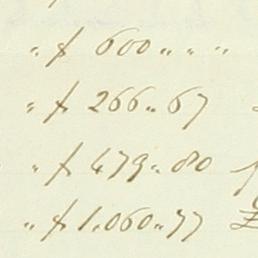 „ ƒ 600 „ „ „
„ ƒ 266 „ 67
„ ƒ 479 „ 80
„ ƒ 1.060 „ 77